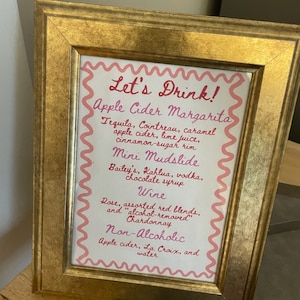 Let's Drink!
Apple Cider Margarita
Tequila, Cointreau, caramel
apple cider, lime juice,
cinnamon-sugar rim
Mini Mudslide
Bailey's, Kahlua, vodka,
chocolate syrup
Wine
Rose, assorted red blends,
and "alcohol-removed"
Chardonnay
Non-Alcoholic
Apple cider, La Croix, and
water